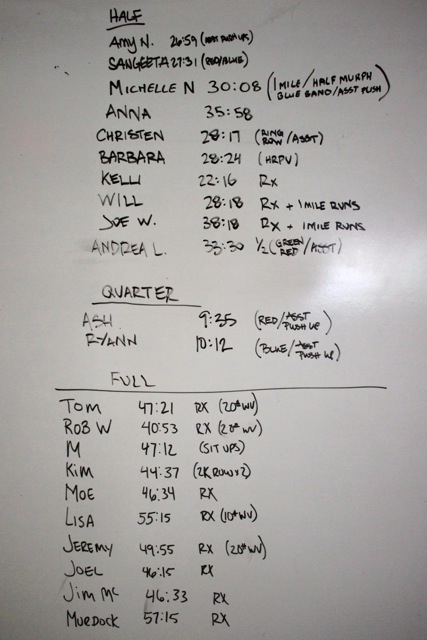 HALF
AMY N. 26:59 (ASST PUSH UPS)
SANGEETA 27:31 (RED/BLUE)
MICHELLE N 30:08 (1 MILE/HALF MURPH
BLUE BAND/ASST PUSH)
ANNA 35:58
CHRISTEN 28:17 (RING ROW/ASST)
BARBARA 28:24 (HRPU)
KELLI 22:16 RX
WILL 28:18 RX + 1 MILE RUNS
JOE W. 38:18 RX + 1 MILE RUNS
ANDREA L. 33:30 1/2 (GREEN RED/ASST)
QUARTER
ASH 9:35 (RED/ASST PUSH UP)
RYANN 10:12 (BLUE/ASST PUSH UP)
FULL
TOM 47:21 RX (20# WV)
ROB W 40:53 RX (20# WV)
M 47:12 (SIT UPS)
KIM 44:37 (2K ROW x 2)
MOE 46:34 RX
LISA 55:15 RX (10# WV)
JEREMY 49:55 RX (20# WV)
JOEL 46:15 RX
JIM MC 46:33 RX
MURDOCK 57:15 RX